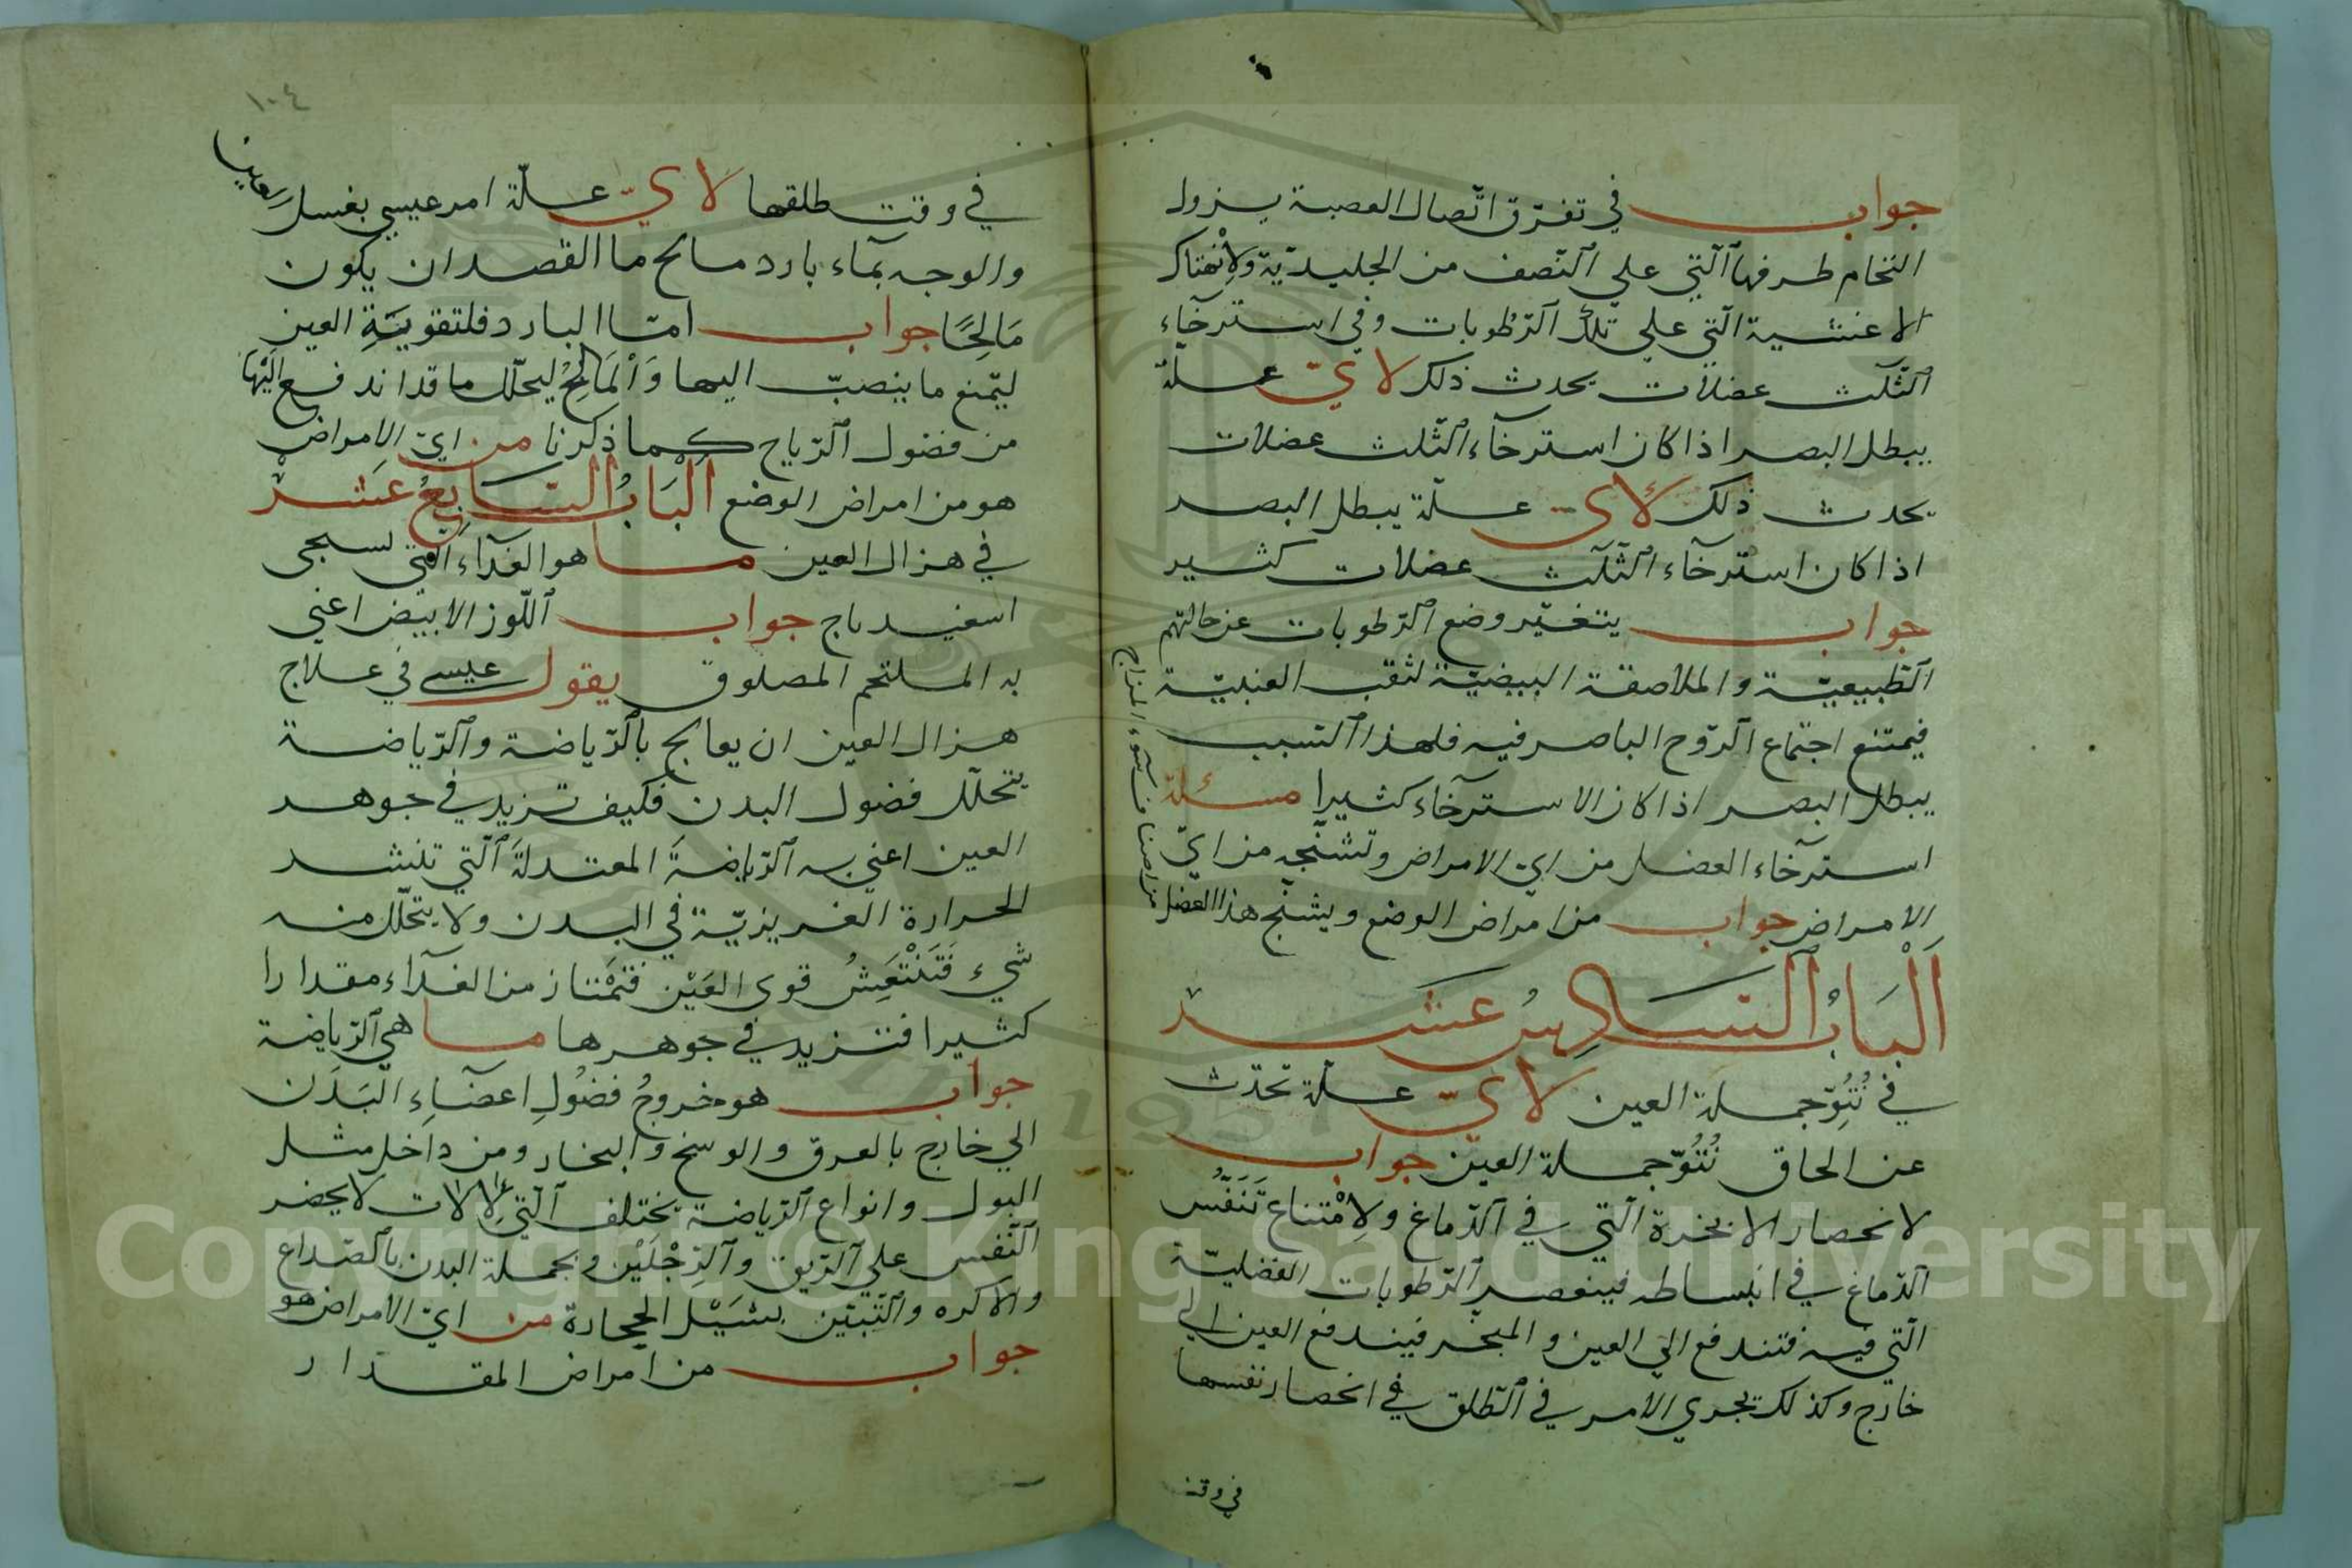 جواب في تفرّق اتّصال العصبة يزول
التحام طرفها ٱلّتي علي ٱلنّصف من الجليديّة ولانهتاك
الاغشية الّتي علي تلك ٱلرّطوبات وفي استرخآء
ٱلثّلث عضلات يحدث ذلك لايّ علّة
يبطل البصر اذا كان استرخآء ٱلثّلث عضلات
يحدث ذلك لأيّ علّة يبطل البصر
اذا كان استرخآء ٱلثّلث عضلات كثير
جواب يتغيّر وضع ٱلرّطوبات عن حالتهم
ٱلطّبيعيّة والملاصقة البيضيّة لثقب العنبيّة
فيمتنع اجتماع ٱلرّوح الباصر فيه فلهذا ٱلسّبب
يبطل البصر اذا كان الاسترخآء كثيرا مسئلة
استرخآء العضل من ايّ الامراض وتشنّجه من ايّ
الامراض جواب من امراض الوضع ويشنّج هذا العضل
من امراض سوء المزاج
اَلْبَابُ ٱلسَّادِسُ عَشَر
في نُتُوِّ جملة العين لايّ علّة تحدث
عن الخناق نُتُوّ جملة العين جواب
لانحصار الابخرة الّتي في ٱلدّماغ ولامْتناع تَنَفُّس
ٱلدّماغ في انبساطه فينعصر ٱلرّطوبات الفضليّة
الّتي فيه فتندفع الي العين والمبخر فيندفع العين الي
خارج وكذلك يجري الامر في ٱلطّلق في انحصار نفسها
في وقت
١٠٤
في وقت طلقها لايّ علّة امر عيسي بغسل العين
والوجه بمآء بارد مالح ما القصد ان يكون
مَالِحًا جواب امّا البارد فلتقويَةِ العين
ليمنع ما ينصبّ اليها وَٱلْمَالِحُ ليحلّل ما قد اندفع اِلَيْهَا
من فضول ٱلرّياح كما ذكرنا من ايّ الامراض
هو من امراض الوضع اَلْبَابُ السَّابِعُ عَشَرْ
في هزال العين ما هو الغذآء الّتي تسمي
اسفيدباج جواب ٱللّوز الابيض اعني
به الملتحم المصلوق يقول عيسي في علاج
هزال العين ان يعالج بٱلرّياضة وٱلرّياضة
يتحلّل فضول البدن فكيف تزيد في جوهر
العين اعني به ٱلرّياضةَ المعتدلةَ ٱلّتي تنشر
الحرارة الغريزيّة في البدن ولا يتحلّل منه
شيء فَتَنْتَعِشُ قوي العَيْن فتمتاز من الغذآء مقدارا
كثيرا فتزيد في جوهرها ما هي ٱلرّياضة
جواب هو خروجُ فضُولِ اعضآءِ البَدَن
الي خارج بالعرق والوسخ والبخار ومن داخل مثل
البول وانواع ٱلرّياضة يختلف ٱلّتي لالات لا يحضر
ٱلنّفس علي ٱلرّيق وٱلرِّجْلَيْن وبجملة البدن بٱلصّراع
والاكره وٱلتّبيّن بشَيْل الحجارة من ايّ الامراض هو
جواب من امراض المقدار
Copyright © King Saud University
1957